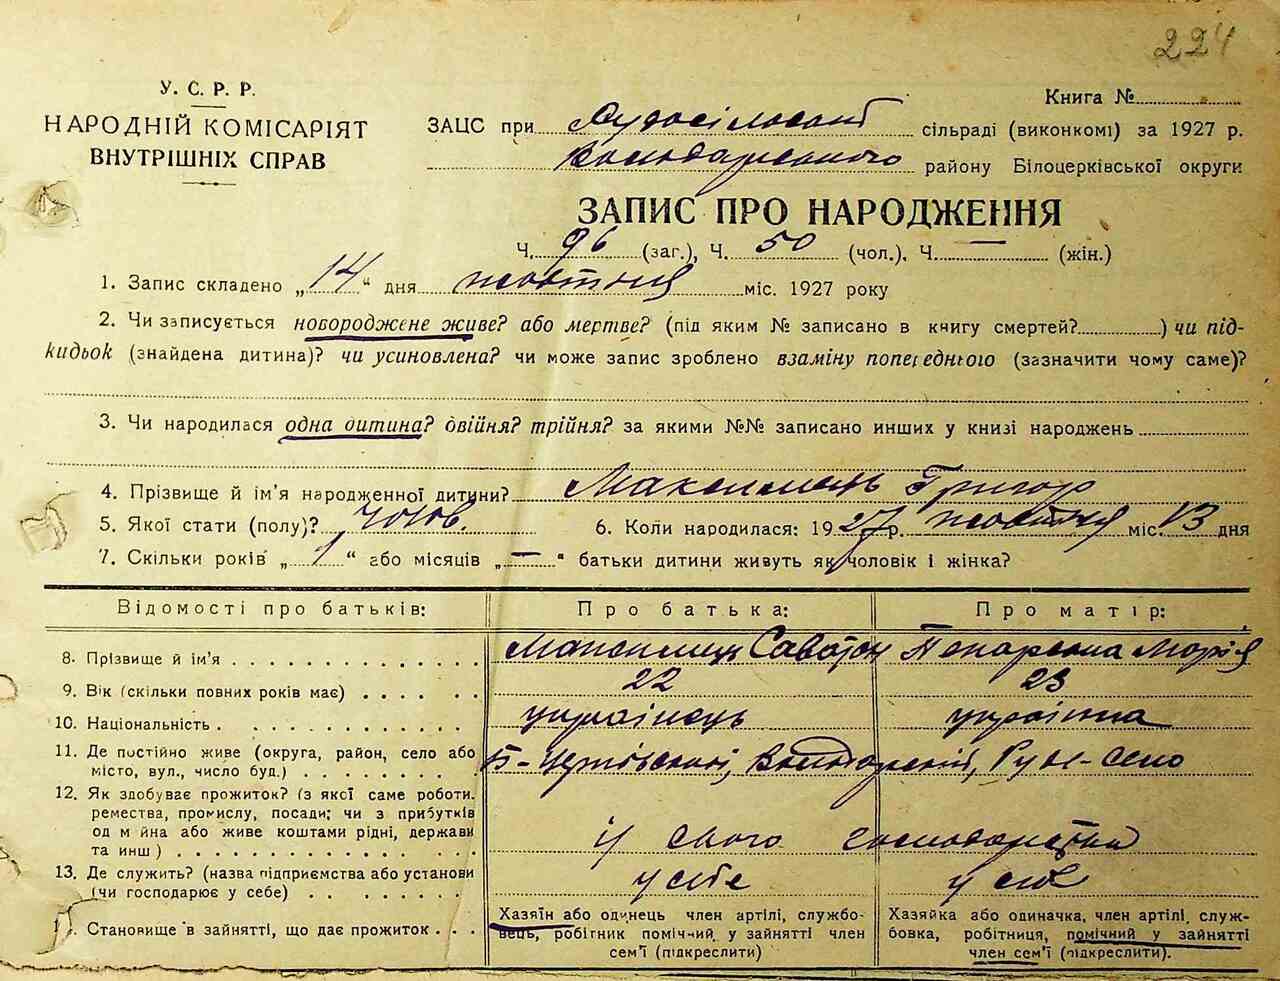 224
У. С. Р. Р.
НАРОДНІЙ КОМІСАРІЯТ
ВНУТРІШНІХ СПРАВ
Книга №
ЗАЦС при сільраді (виконкомі) за 1927 р.
району Білоцерківської округи
ЗАПИС ПРО НАРОДЖЕННЯ
Ч. 96 (заг.), Ч. 50 (чол.), Ч. — (жін.)
1. Запис складено „14“ дня жовтня міс. 1927 року
2. Чи записується новороджене живе? або мертве? (під яким № записано в книгу смертей?) чи під-
кидьок (знайдена дитина)? чи усиновлена? чи може запис зроблено взаміну попереднього (зазначити чому саме)?
3. Чи народилася одна дитина? двійня? трійня? за якими №№ записано инших у книзі народжень
4. Прізвище й ім'я народженної дитини? Максимець Григор
5. Якої стати (полу)? чолов. 6. Коли народилася: 1927 р. жовтня міс. 13 дня
7. Скільки років „1“ або місяців „—“ батьки дитини живуть як чоловік і жінка?
Відомості про батьків: Про батька: Про матір:
8. Прізвище й ім'я Максимець Марія
9. Вік (скільки повних років має) 22 23
10. Національність українець українка
11. Де постійно живе (округа, район, село або
місто, вул., число буд.) Б-Церківський, Володарський, Руде-Село
12. Як здобуває прожиток? (з якої саме роботи.
ремества, промислу, посади; чи з прибутків
од майна або живе коштами рідні, держави
та инш) із свого господарства
13. Де служить? (назва підприємства або установи
(чи господарює у себе) у себе у себе
Становище в зайнятті, що дає прожиток
Хазяїн або одинець член артілі, службо-
вець, робітник помічний у зайнятті член
сем'ї (підкреслити)
Хазяйка або одиначка, член артілі, служ-
бовка, робітниця, помічний у зайнятті
член сем'ї (підкреслити).